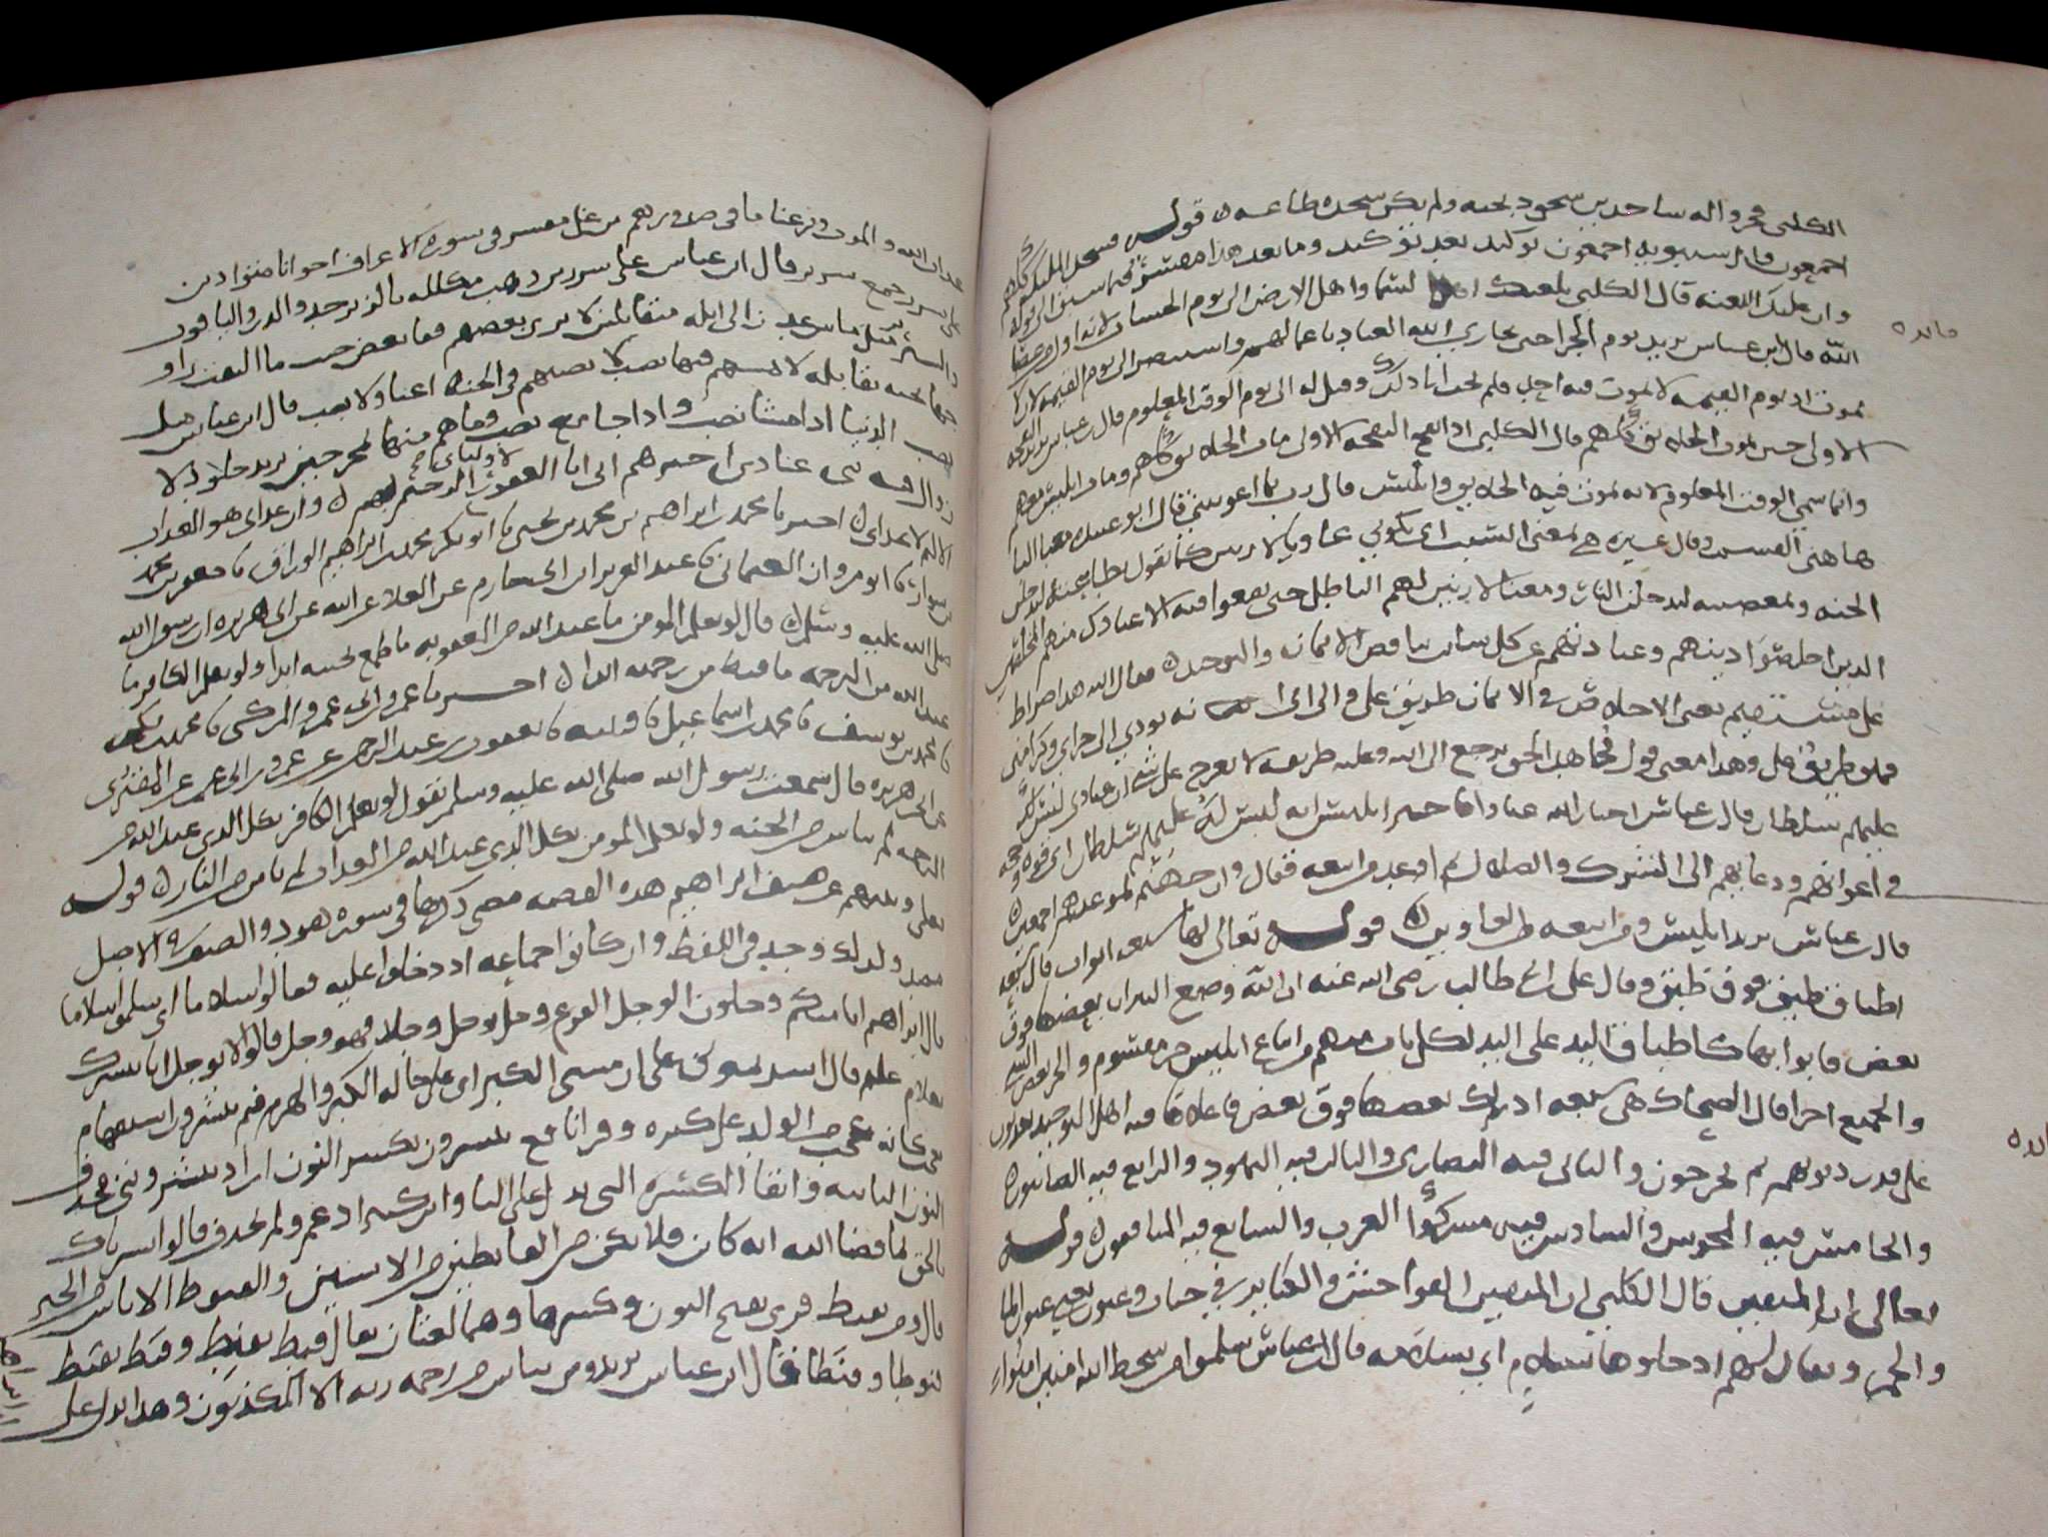 الكلبي فخروا له ساجدين سجود تحيه ولم يكن سجده طاعه قوله فسجد الملائكة كلهم
اجمعون قال سيبويه اجمعون توكيد بعد توكيد وما بعد هذا مفسر فيما سبق الى قوله
وان عليك اللعنه قال الكلبي يلعنك اهل السما واهل الارض الى يوم الحساب لانه اول من عصا
الله قال ابن عباس يريد يوم الجزا حين يجازي الله العباد باعمالهم واستنصر الى يوم القيمه
يموت اذ يوم القيمه لا يموت فيه احد فلم يجب الى ذلك وقيل له الى يوم الوقت المعلوم قال ابن عباس يريد النفخه
الاولى حين يموت الخلايق كلهم قال الكلبي اذا نفخ النفخه الاولى مات الخلايق كلهم ومات ابليس معهم
وانما سمي الوقت المعلوم لانه يموت فيه الخلايق وابليس قال رب بما اغويتني قال ابو عبيده معنى البا
هاهنا القسم وقال غيره هي بمعنى السبب اي بكوني غاويا لازينن كما تقول بطاعته ليدخلن
الجنه وبمعصيته ليدخلن النار ومعنا لازينن لهم الباطل حتى يقعوا فيه الا عبادك منهم المخلصين
الذين اخلصوا دينهم وعبادتهم عن كل شايب يناقض الايمان والتوحيد فقال الله هذا صراط
على مستقيم يعني الاخلاص في الايمان طريق علي والي اي انه يودي الى جزاي وكرامتي
فهو طريق علي وهذا معنى قول مجاهد الحق يرجع الى الله وعليه طريقه لا يعرج على شي ان عبادي ليس لك
عليهم سلطان قال ابن عباس اخبار الله عبادا خير ابليس انه ليس له عليهم سلطان اي قوه وحجه
في اغوائهم ودعايهم الى الشرك والضلال ثم اوعد من اتبعه فقال وان جهنم لموعدهم اجمعين
قال ابن عباس يريد ابليس ومن اتبعه من الغاوين قوله تعالى لها سبعه ابواب قال سبعه
اطباق طبق فوق طبق وقال علي بن ابي طالب رضي الله عنه ان الله وضع النيران بعضها فوق
بعض فابوابها كاطباق اليد على اليد لكل باب منهم من اتباع ابليس جزء مقسوم والجزء بعض الشي
والجميع اجزا قال الضحاك هي سبعه ادراك بعضها فوق بعض فاعلاها فيه اهل التوحيد يعذبون
على قدر ذنوبهم ثم يخرجون والثاني فيه النصارى والثالث فيه اليهود والرابع فيه الصابيون
والخامس فيه المجوس والسادس فيه مشركوا العرب والسابع فيه المنافقون قوله
تعالى ان المتقين قال الكلبي ان المتقين الفواحش والكباير في جنات وعيون يعني عيون الما
والخمر ويقال لهم ادخلوها بسلام اي بسلامه قال ابن عباس سلموا من سخط الله امنين امنوا
فايده
فايده
عذاب الله والموت ونزعنا ما في صدورهم من غل مفسر في سوره الاعراف اخوانا متوادين
على سرر جمع سرير قال ابن عباس على سرر من ذهب مكلله بالزبرجد والدر والياقوت
والسرير مثل ما بين عدن الى ايله متقابلين لا يرى بعضهم قفا بعض حيث ما التفت راو
وجها يحبه يقابله لا يمسهم فيها نصب لا يصيبهم في الجنه اعيا ولا تعب قال ابن عباس مثل
نصب الدنيا اذا مشا نصب واذا جامع نصب وما هم منها بمخرجين يريد خلود لا
زوال فيه نبي عبادي اخبرهم اني انا الغفور لاوليائي الرحيم بهم وان عذابي هو العذاب
الاليم لاعدائي اخبرنا محمد بن ابراهيم بن محمد بن يحيى نا ابو بكر محمد بن ابراهيم الوراق نا جعفر بن محمد
بن سوار نا ابو مروان العثماني نا عبد العزيز ابن ابي حازم عن العلا عن ابيه عن ابي هريره ان رسول الله
صلى الله عليه وسلم قال لو يعلم المومن ما عند الله من العقوبه ما طمع بجنته ابدا ولو يعلم الكافر ما
عند الله من الرحمه ما قنط من رحمه الله اخبرنا عمرو ابن ابي عمرو المزكي نا محمد بن مكي
نا محمد بن يوسف نا محمد بن اسماعيل نا قتيبه نا يعقوب بن عبد الرحمن عن عمرو بن ابي عمرو عن المقبري
عن ابي هريره قال سمعت رسول الله صلى الله عليه وسلم يقول لو يعلم الكافر بكل الذي عند الله من
الرحمه لم يياس من الجنه ولو يعلم المومن بكل الذي عند الله من العذاب لم يامن من النار قوله
تعالى ونبيهم عن ضيف ابراهيم هذه القصه مضى ذكرها في سوره هود والضيف في الاصل
مصدر ولذلك وحد في اللفظ وان كانوا جماعه اذ دخلوا عليه فقالوا سلاما اي سلموا سلاما
قال ابراهيم انا منكم وجلون الوجل الفزع وجل يوجل وجلا فهو وجل قالوا لا توجل انا نبشرك
بغلام عليم قال ابشرتموني على ان مسني الكبر اي على حاله الكبر والهرم فبم تبشرون استفهام
تعجب كانه عجب من الولد على كبره وقرا نافع تبشرون بكسر النون اراد تبشرونني فحذف
النون الثانيه وابقا الكسره التي تدل على اليا وابن كثير ادغم ولم يحذف قالوا بشرناك
بالحق بما قضا الله انه كان فلا تكن من القانطين من الايسين والقنوط الاياس من الخير
قال ومن يقنط قرى بفتح النون وكسرها وهما لغتان يقال قنط يقنط وقنط يقنط
قنوطا وقنطا قال ابن عباس يريد ومن يياس من رحمه ربه الا المكذبون وهذا يدل على